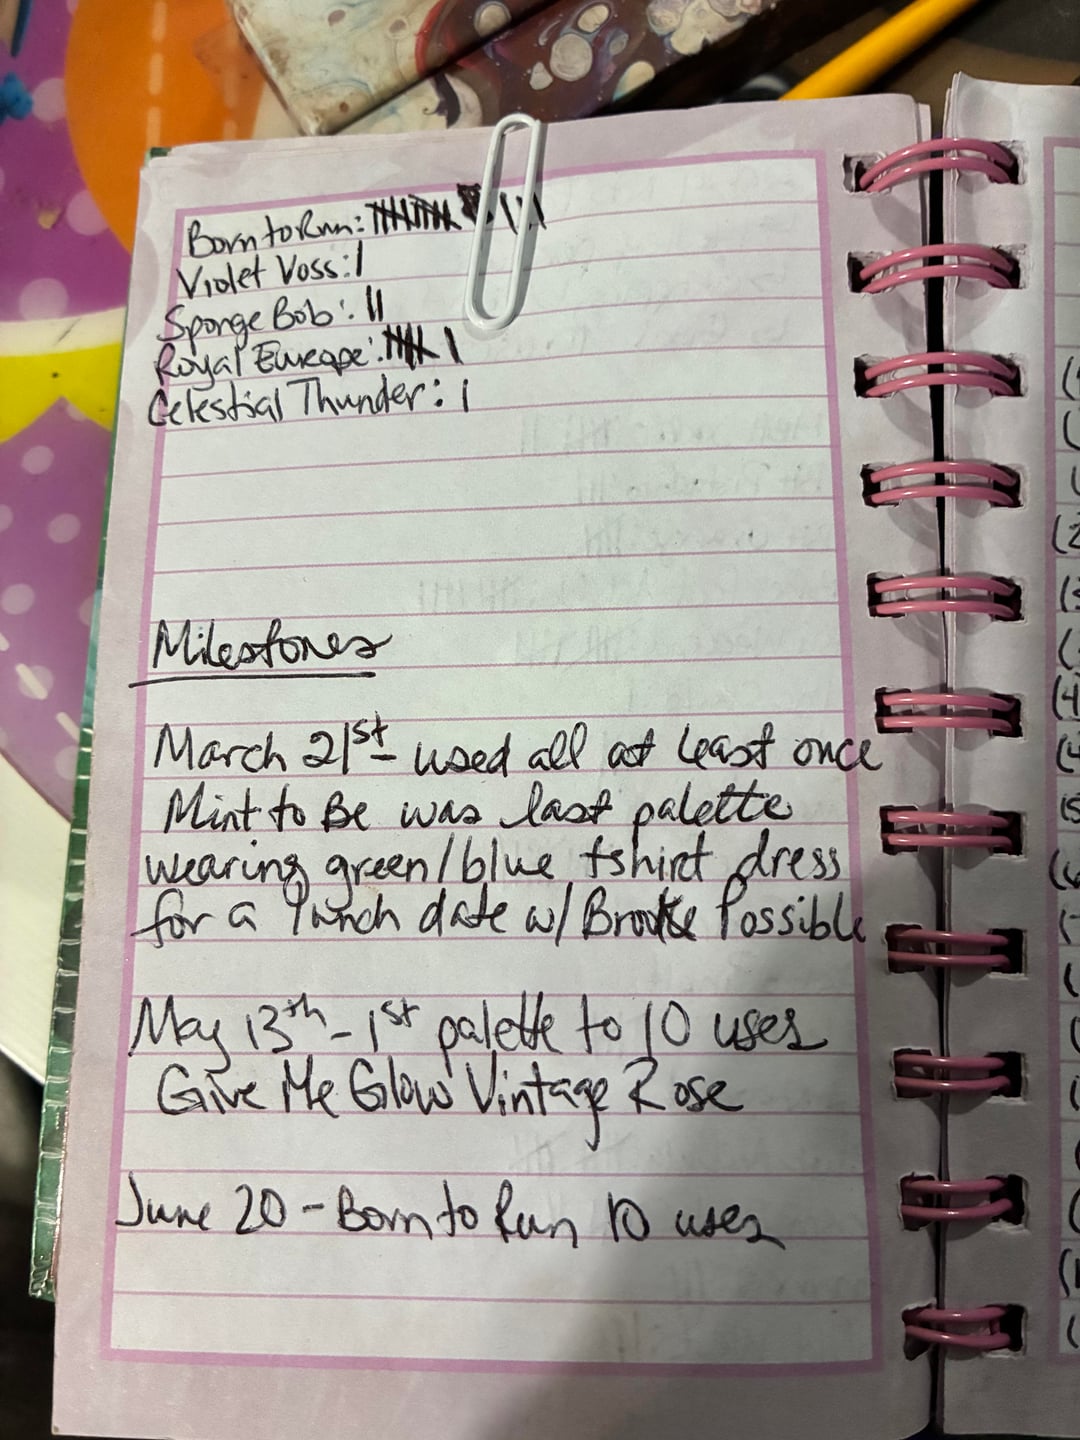 Born to Run: 𝍸𝍸 \ \ \
Violet Voss: |
Sponge Bob: ||
Royal Eureape: 𝍸 \
Celestial Thunder: |
Milestones
March 21st - used all at least once
Mint to Be was last palette
wearing green/blue tshirt dress
for a lunch date w/ Brooke Possible
May 13th - 1st palette to 10 uses
Give Me Glow Vintage Rose
June 20 - Born to Run 10 uses